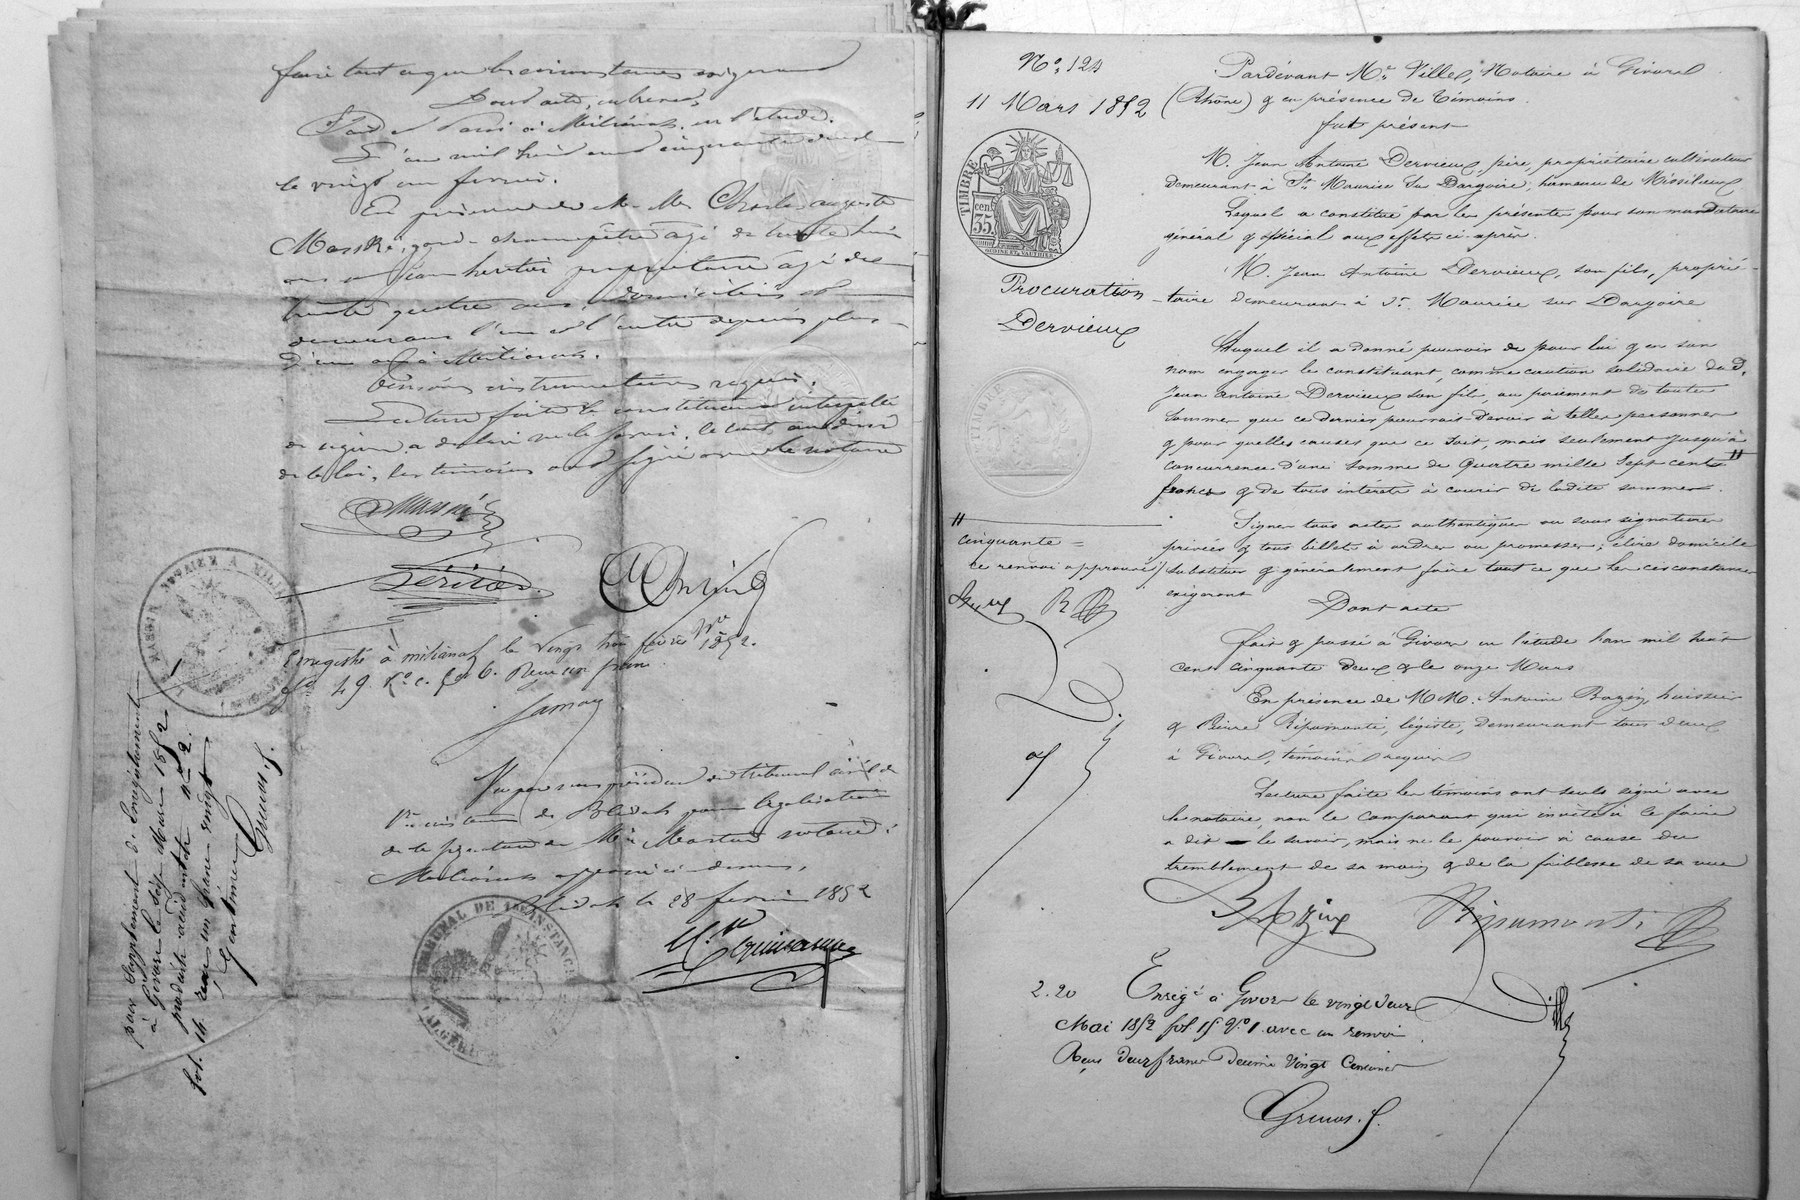 faire tout ce que les circonstances exigeront
Dont acte, en brevet,
Fait et Passé à Milianah, en l'étude.
L'an mil huit cent cinquante deux
le vingt un février.
En présence de MM. Charles auguste
garde champêtre âgé de trente huit
ans propriétaire âgé de
trente quatre ans, domiciliés et
demeurant l'un et l'autre depuis plus
d'un an à Milianah.
témoins instrumentaires requis.
Lecture faite le constituant interpellé
de signer a déclaré ne le savoir, le tout au désir
de la loi, les témoins ont signé avec le notaire
Enregistré à milianah le vingt trois février 1852.
fo 49 Ro c. 6. Reçu un franc
Vu par nous président du tribunal civil de
1re instance de Blidah pour légalisation
de la signature de Me notaire à
Milianah apposée ci dessus,
Blidah le 28 février 1852
TRIBUNAL DE 1re INSTANCE
ALGÉRIE
pour supplément de l'enregistrement
à Givors le Mars 1852
produit acte
fol. 16. reçu un franc vingt
centimes
Grenos. f.
No. 124
11 Mars 1852
TIMBRE
35
cent
Procuration
Dervieux
TIMBRE
Pardevant Me. Ville, Notaire à Givors
(Rhône) & en présence de Témoins.
fut présent
M. Jean Antoine Dervieux, père, propriétaire cultivateur
demeurant à St. Maurice Sur Dargoire, hameau de Missilieux
Lequel a constitué par les présentes pour son mandataire
général & spécial aux effets ci-après.
M. Jean Antoine Dervieux, son fils, proprié-
-taire demeurant à St. Maurice sur Dargoire
Auquel il a donné pouvoir de pour lui & en son
nom engager le constituant, comme caution solidaire dud.
Jean Antoine Dervieux son fils, au paiement de toutes
sommes que ce dernier pourrait devoir à telles personnes
& pour quelles causes que ce soit, mais seulement jusqu'à
concurrence d'une somme de quatre mille sept cents //
francs & de tous intérêts à courir de ladite somme.
Signer tous actes authentiques ou sous signatures
privées & tous billets à ordre ou promesses; élire domicile
substituer & généralement faire tout ce que les circonstances
exigeront
//
cinquante =
ce renvoi approuvé /
Dont acte
fait & passé à Givors en l'étude l'an mil huit
cent cinquante deux & le onze Mars
En présence de MM. Antoine Bazin, huissier
& Pierre Ripamonti, légiste, demeurant tous deux
à Givors, témoins requis
Lecture faite les témoins ont seuls signé avec
le notaire, non le comparant qui invité à le faire
a dit le savoir, mais ne le pouvoir à cause du
tremblement de sa main & de la faiblesse de sa vue
Bazin Ripamonti
2.20
Enregé à Givors le vingt deux
Mai 1852 fol 15 Vo 1. avec un renvoi
Reçu deux francs decime vingt centimes
Grenos. f.